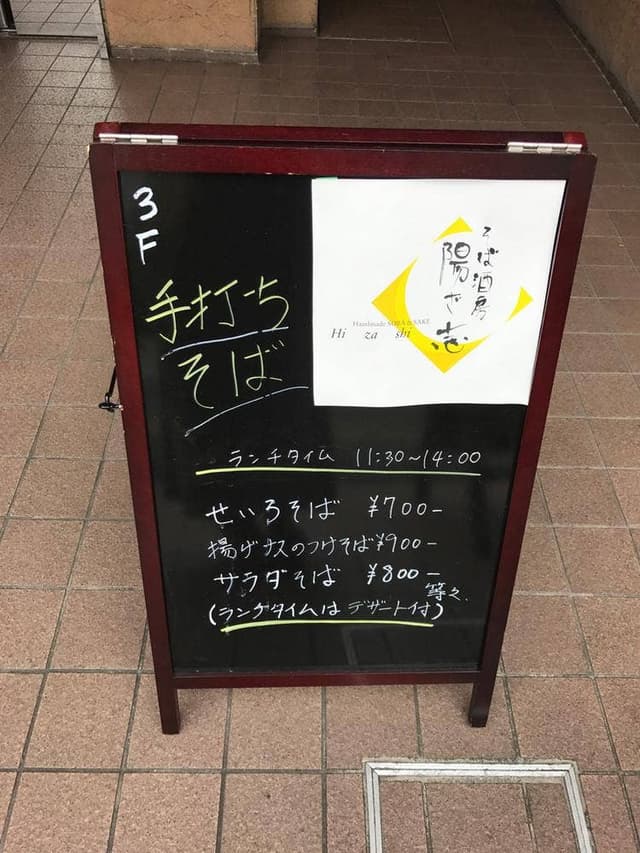 3F
手打ち
そば
そば酒房
陽ざ志
Handmade SOBA & SAKE
Hi za shi
ランチタイム 11:30~14:00
せいろそば ¥700-
揚げナスのつけそば ¥900-
サラダそば ¥800-
等々
(ランチタイムは デザート付)